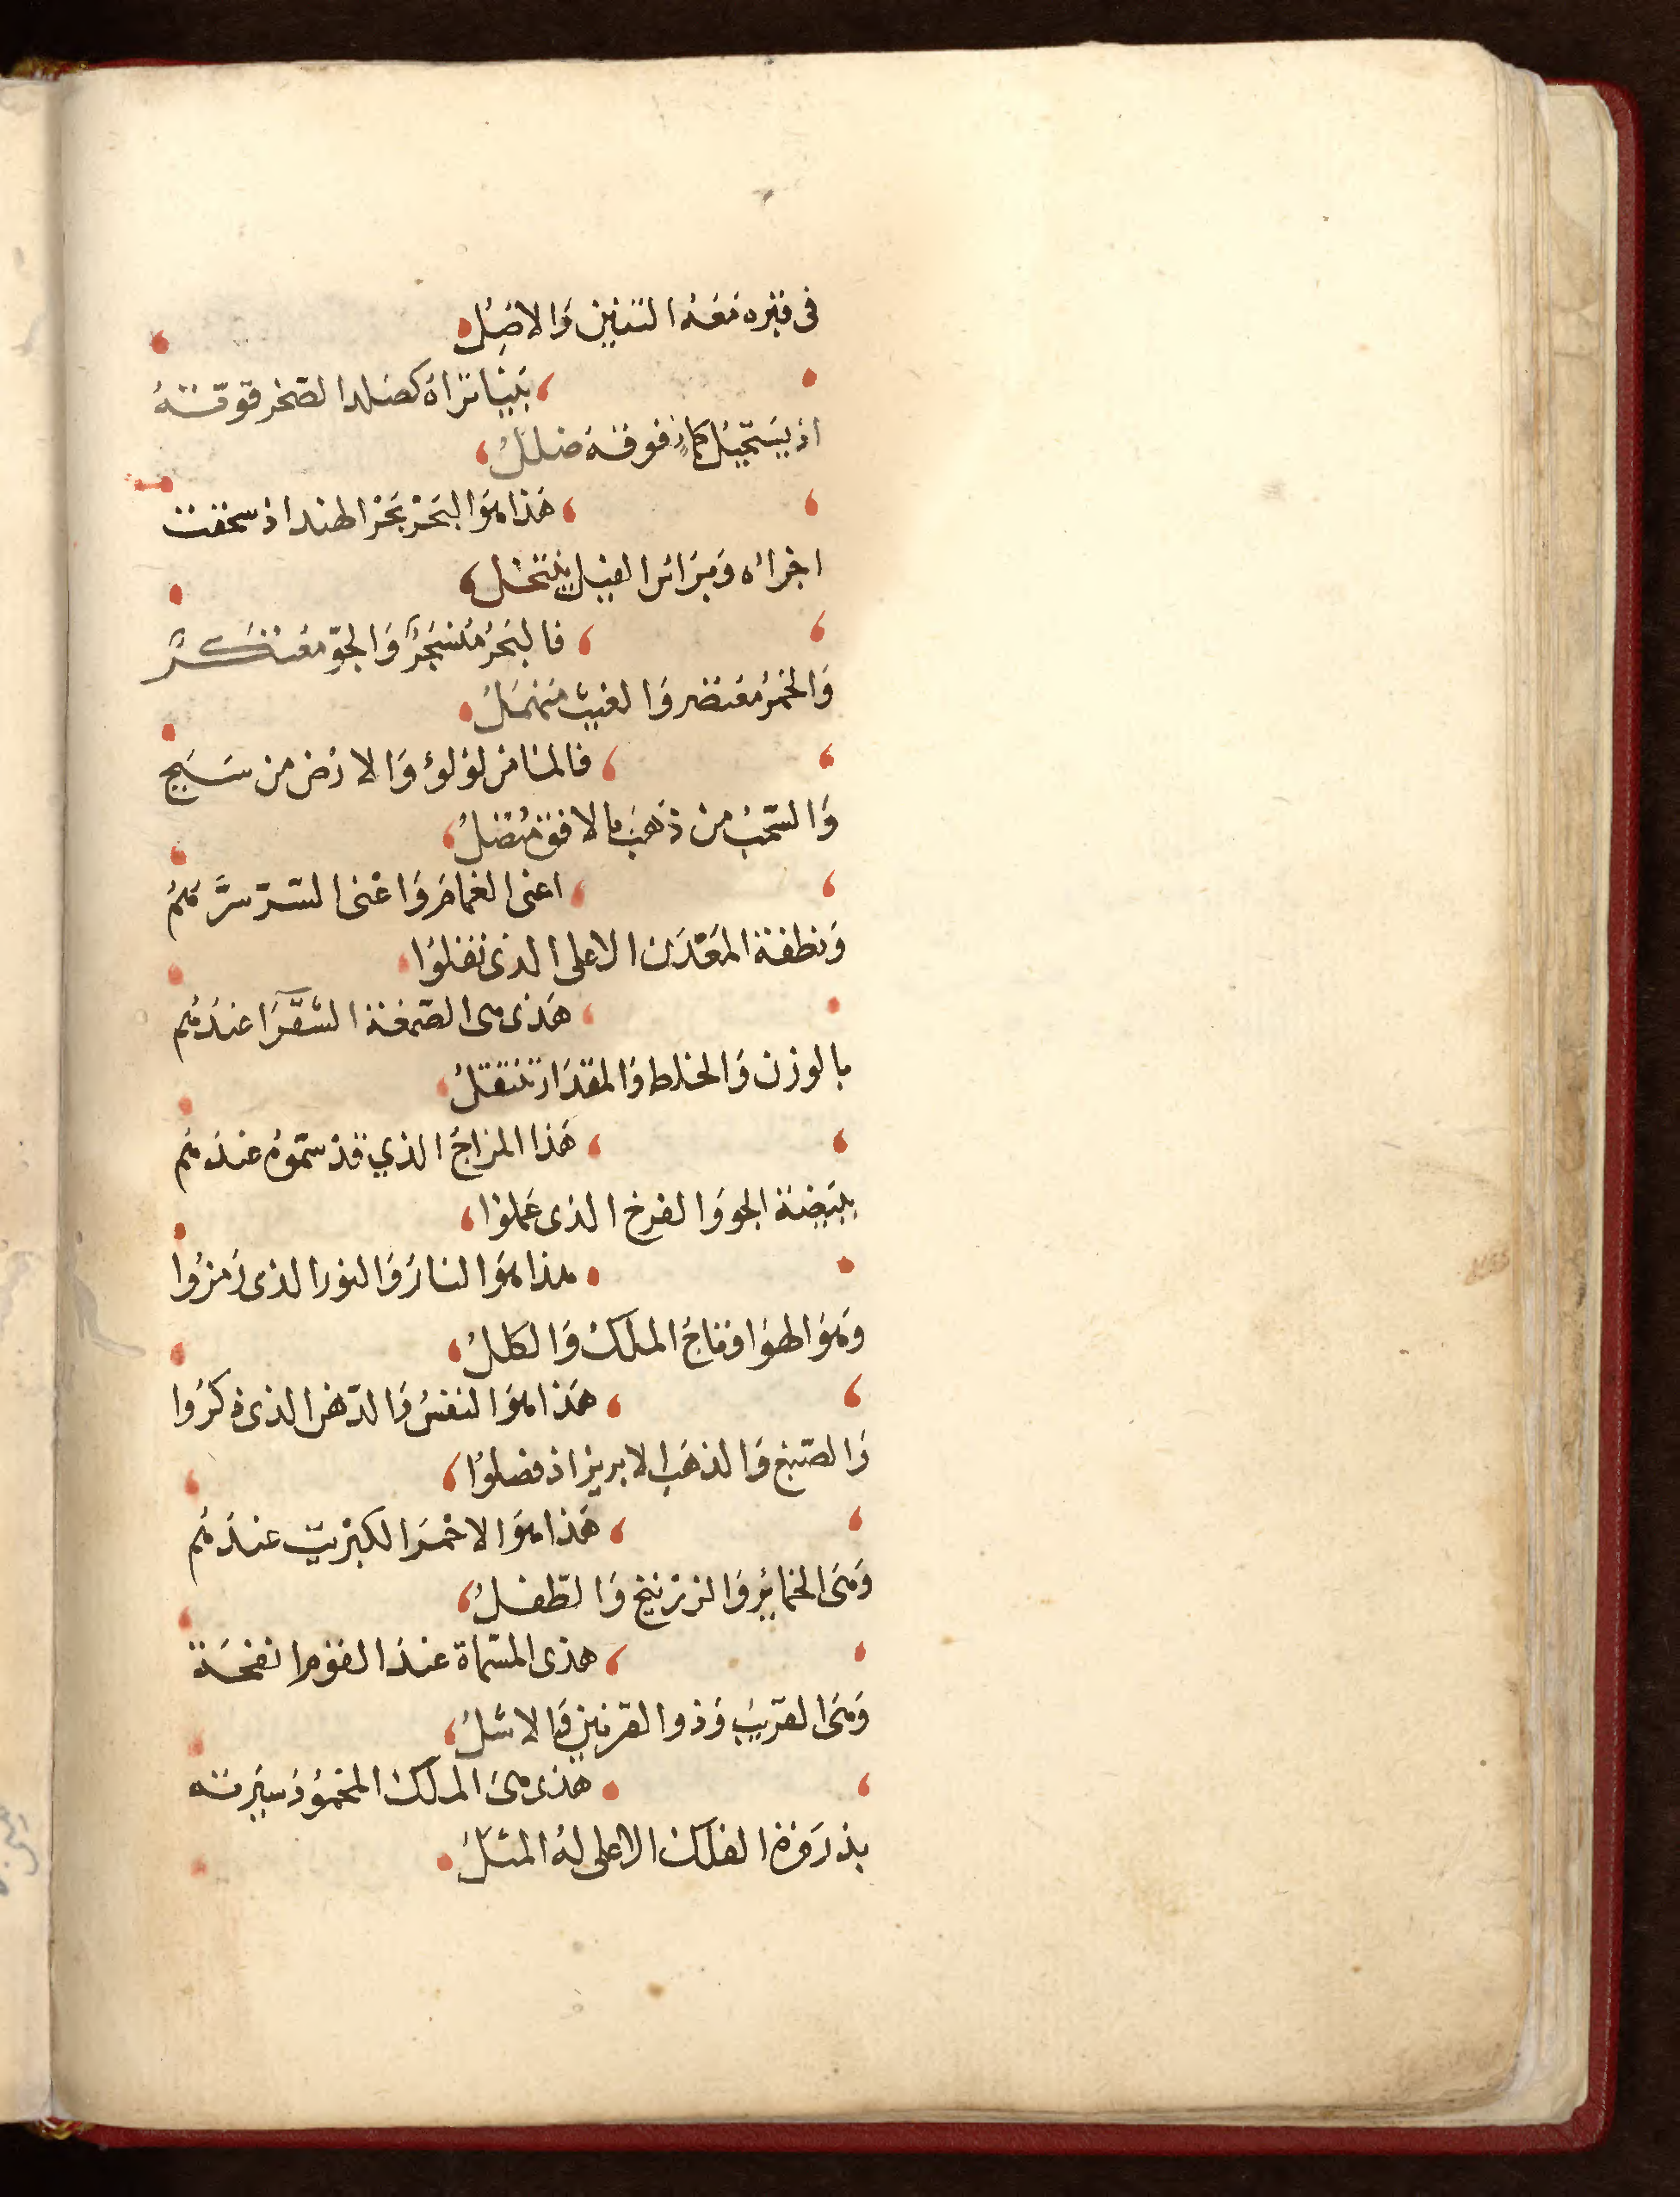 فى قبره مَعَهُ التنين وَالاصَلُ
بَيْنا تراهُ كصَلد الصّخر قوّتهُ
اذ يَستحيْل فوقهُ ظللُ
هَذا هوَ البَحْر بَحْر الهند اذ سحقت
اجزائه وَمَرائر الفيل ينتخل
فالبَحرُ مُنسَجرٌ وَالجوّ مُعتكرٌ
وَالخمرُ معتصر وَالغيث منهمَلُ
فالماء من لؤلؤ وَالارْض من سَبَج
وَالسّحبُ من ذهَب بالافق متصلُ
اعنى الغمامَ وَاعْنى السّر سرَّهمُ
وَنطفة المعْدَن الاعلى الذى نقلوُا
هَذى هى الصّمغة الشَّقرَا عندَهُم
بالوزن وَالخلط وَالمقدَار تنتقلُ
هَذا المزاجُ الذي قد سَمّوهُ عندَهُم
ببَيضة الجو وَالفرخ الذى عَملوُا
هذا هوَ النارُ وَالنور الذى رَمزُوا
وَهوَ الهوَا وتاجُ الملكُ وَالكللُ
هَذا هوَ النفسُ وَالدّهن الذى ذكرُوا
وَالصّبغ وَالذهَب الابريز اذ فصلوُا
هَذا هوَ الاحْمَر الكبْريت عندَهُم
وَهىَ الخمائر وَالزرنيخ وَالطفلُ
هذى المسّماة عندَ القوم انفحَة
وَهىَ القريبُ وَذوا القرنين وَالاشلُ
هَذى هىَ الملكُ المحْمُودُ سيْرته
بذروَة الفلك الاعلى لهُ المثلُ